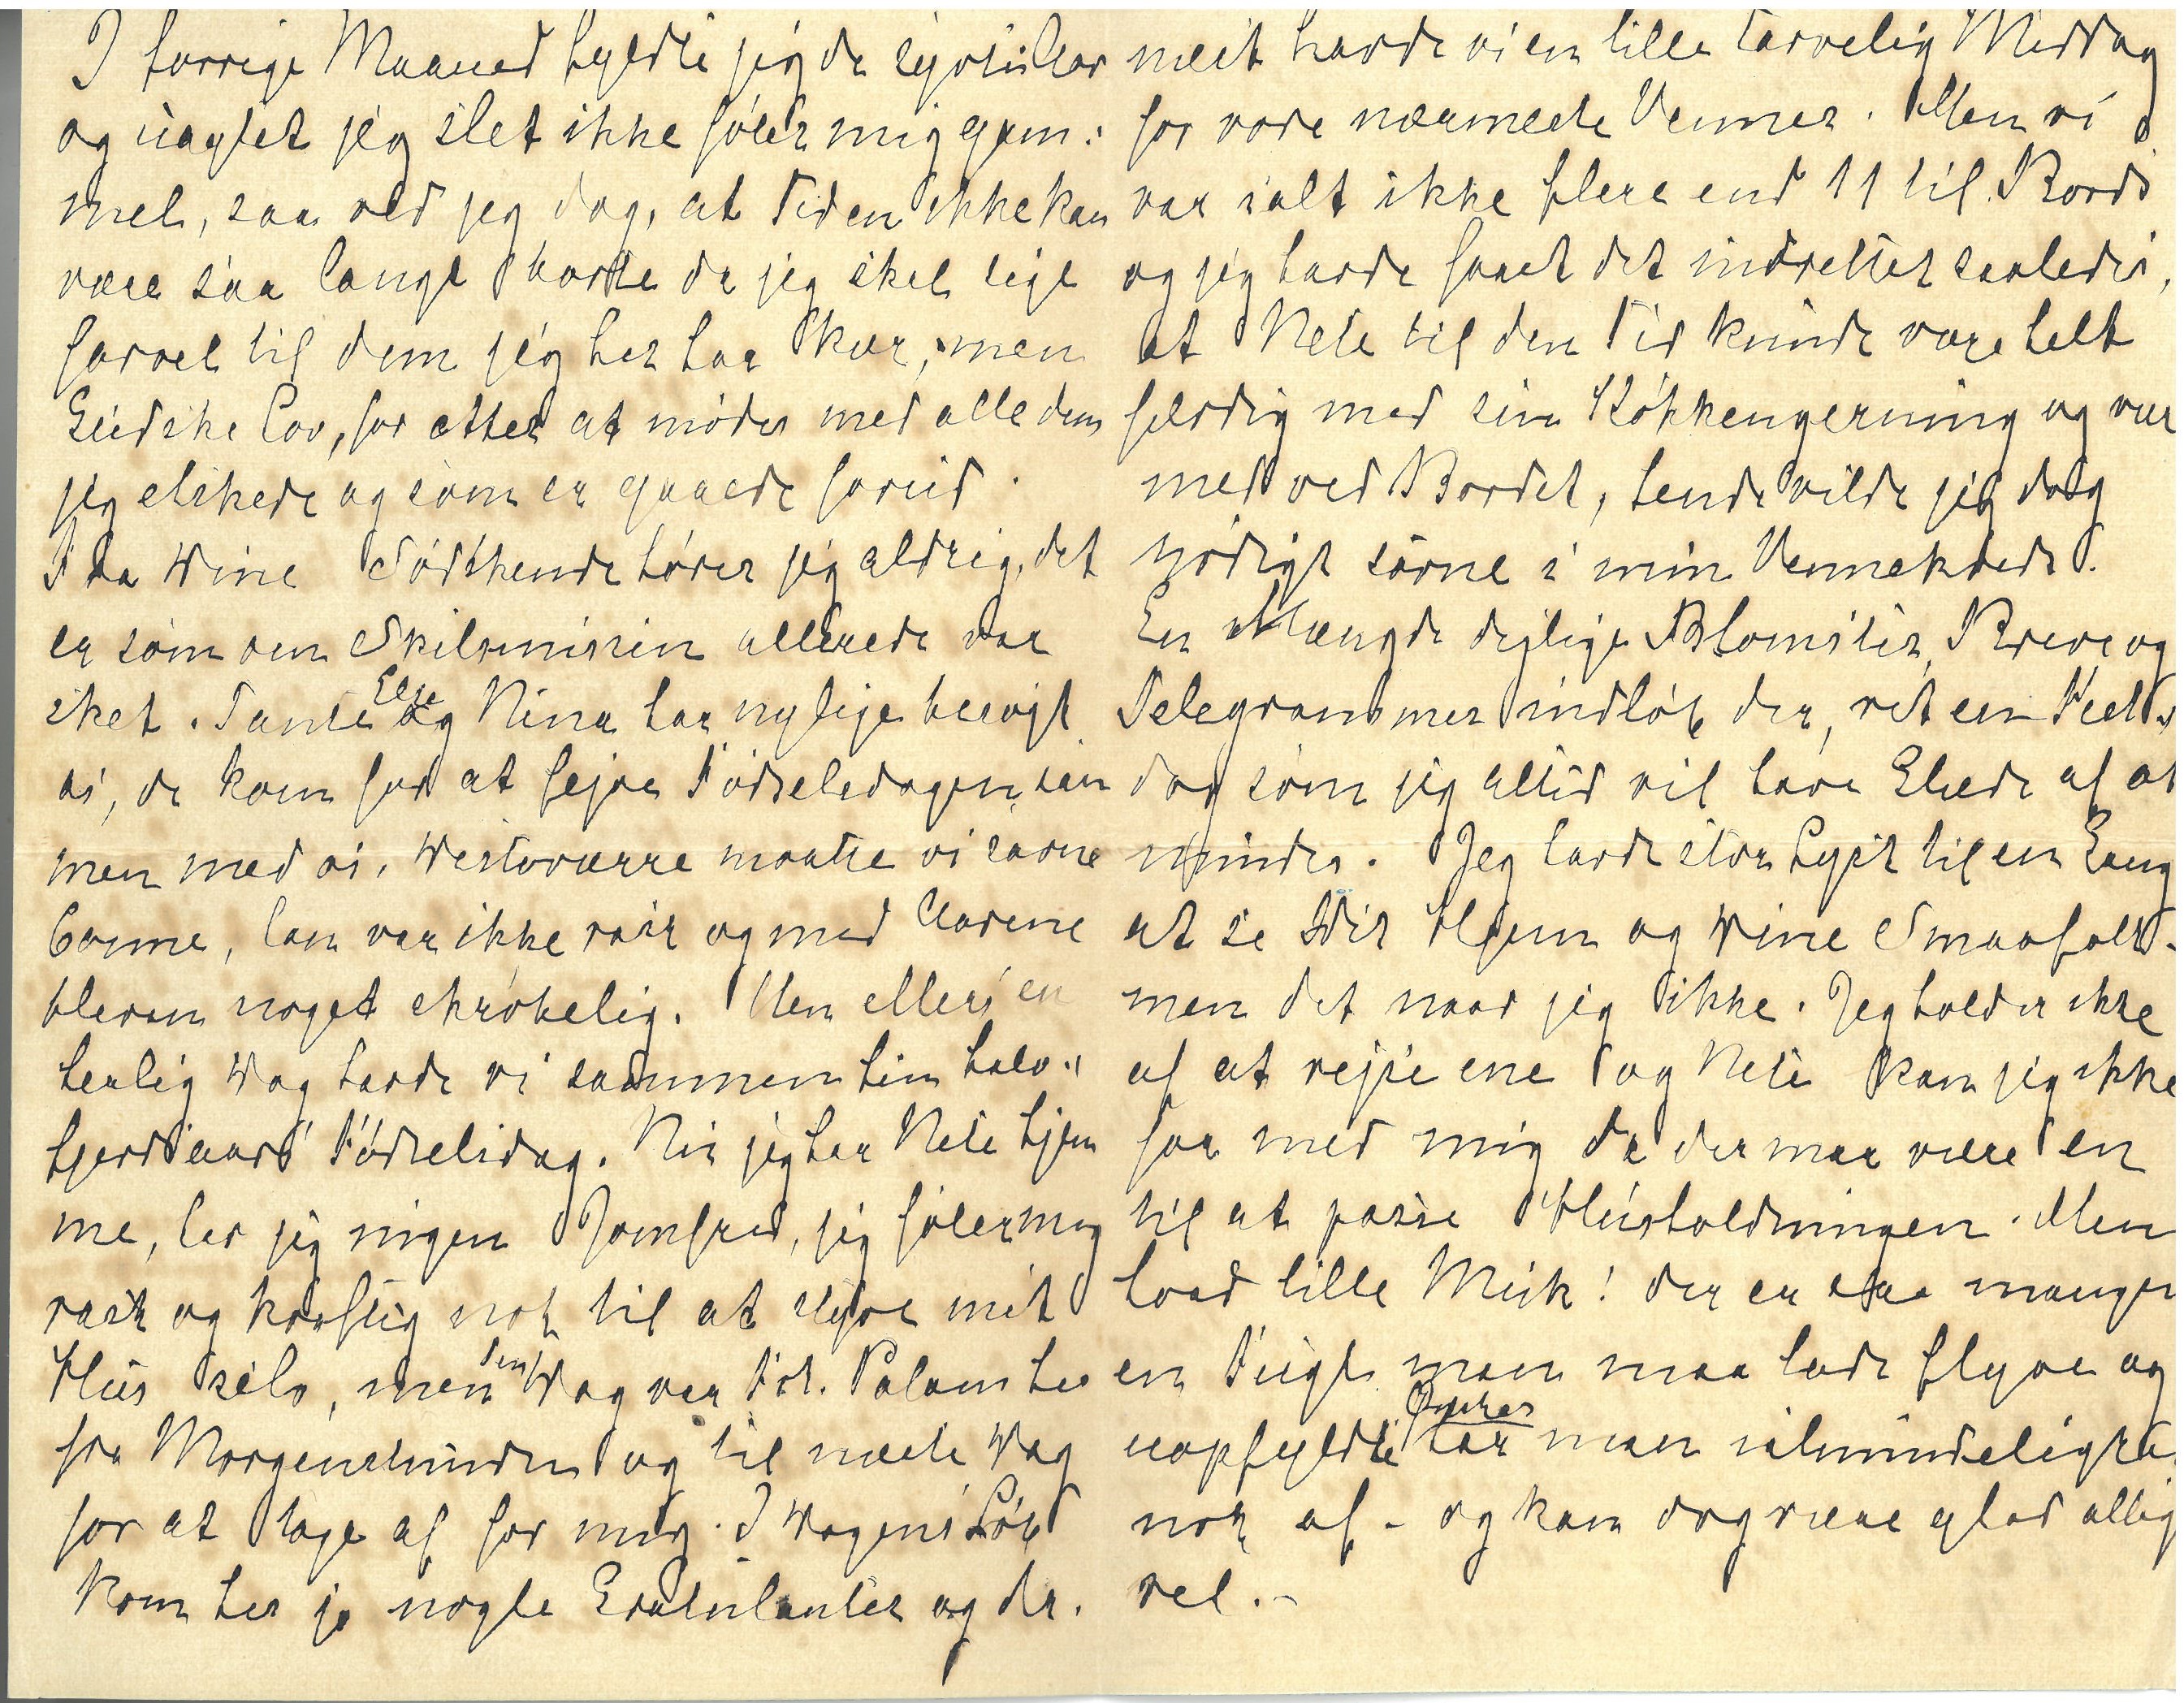 I forrige Maaned fyldte jeg de syvti Aar
og uagtet jeg slet ikke føler mig gam:
mel, saa ved jeg dog, at Tiden ikke kan
være saa langt borte da jeg skal sige
farvel til dem jeg her har kær, men
Gudske Lov, for atter at mødes med alle dem
jeg elskede og som er gaaede forud.
Fra Dine Sødskende hører jeg aldrig, det
er som om Skilsmissen allerede var
sket. Tante Else og Nina har nylige besøgt
os, de kom for at fejre Fødselsdagen sam
men med os. Desto værre maatte vi savne
Conne, han var ikke rask og med Aarene
bleven noget skrøbelig. Men ellers en
herlig Dag havde vi sammen hin halv:
fjerds aars Fødselsdag. Nu jeg har Nete hjem
me, har jeg ingen Jomfru, jeg føler mig
rask og kraftig nok til at styre mit
Hus selv, men den Dag var Frk. Palam her
fra Morgenstunden og til næste Dag
for at tage af for mig. I Dagens Løb
kom her jo nogle Gratulanter og der.
næst havde vi en lille tarvelig Middag
for vore nærmeste Venner. Men vi
var ialt ikke flere end 11 til Bords
og jeg havde faaet det indrettet saaledes,
at Nete til den Tid kunde være helt
færdig med sin Køkkengerning og var
med ved Bordet, hende vilde jeg dog
nødigt savne i min Vennekreds.
En Mængde dejlige Blomster, Breve og
Telegrammer indløb der, ret en Fest:
dag som jeg altid vil have Glæde af at
mindes. Jeg havde stor Lyst til en Gang
at se Dit Hjem og Dine Smaafolk -
men det naar jeg ikke. Jeg holder ikke
af at rejse ene og Nete kan jeg ikke
faa med mig da der maa være en
til at passe Husholdningen. Men
hvad lille Musk! der er saa mangen
en Fugl man maa lade flyve og
uopfyldte Ønsker har man almindeligvis
nok af - og kan dog være glad allige
vel. -